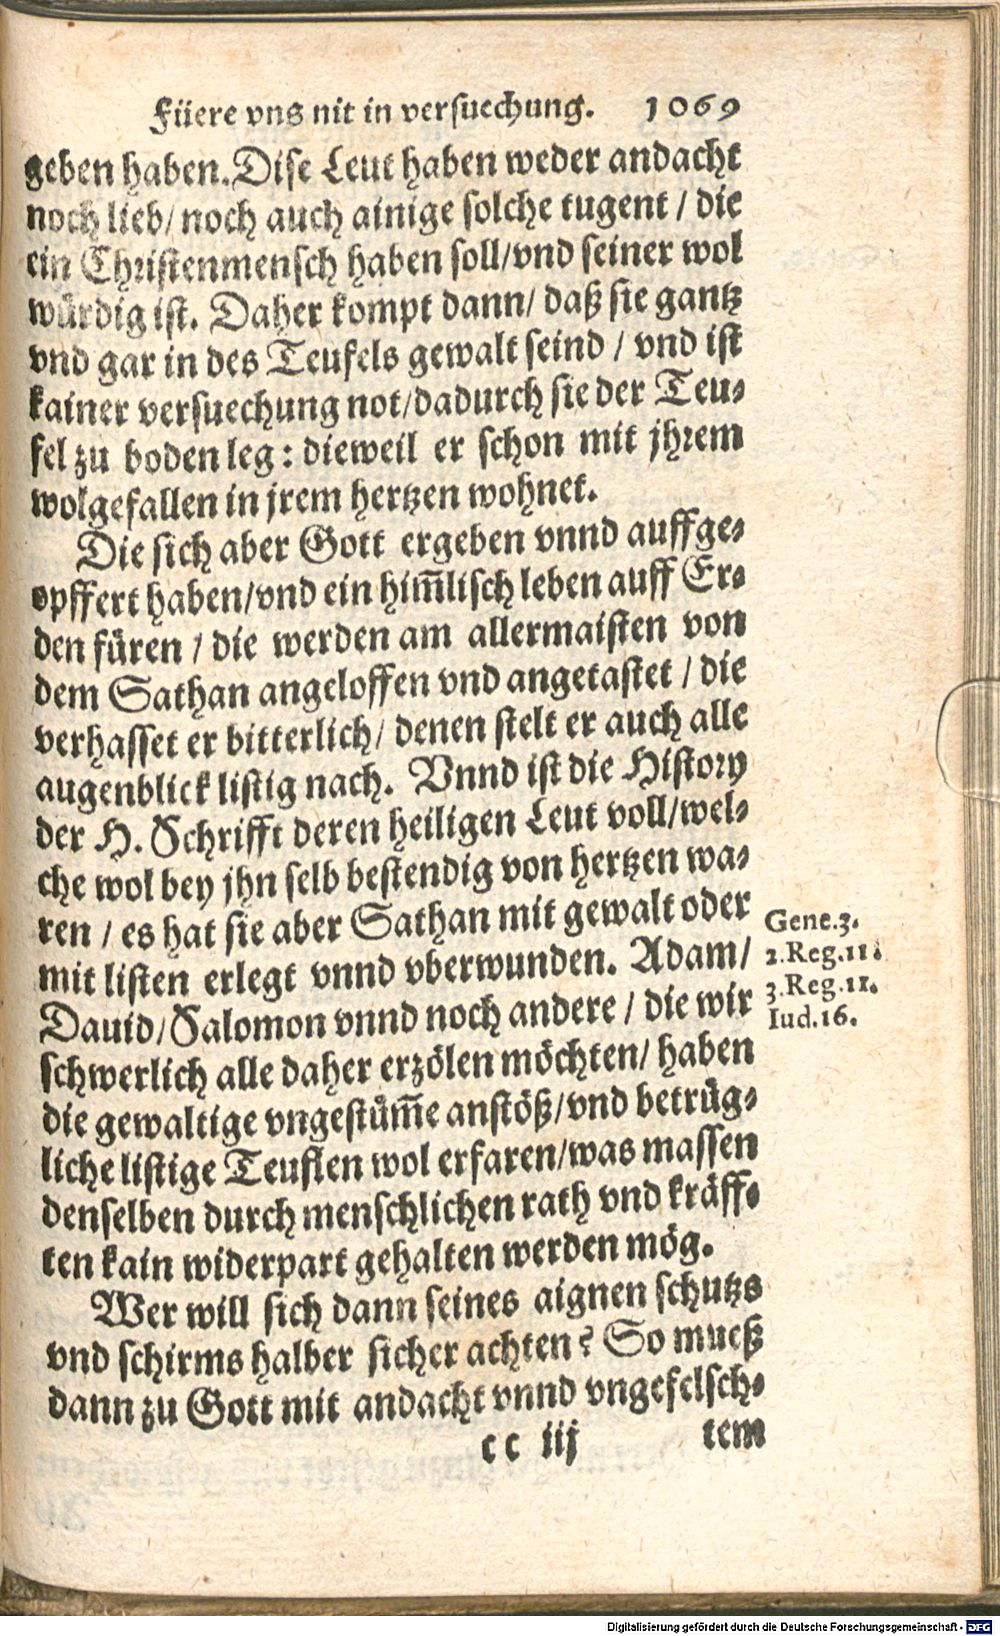 Füere vns nit in versuechung. 1069
geben haben. Dise Leut haben weder andacht
noch lieb/ noch auch ainige solche tugent / die
ein Christenmensch haben soll/vnd seiner wol
würdig ist. Daher kompt dann/ daß sie gantz
vnd gar in des Teufels gewalt seind / vnd ist
kainer versuechung not/dadurch sie der Teu⸗
fel zu boden leg: dieweil er schon mit jhrem
wolgefallen in jrem hertzen wohnet.
Die sich aber Gott ergeben vnnd auffge⸗
opffert haben/vnd ein him̃lisch leben auff Er⸗
den füren / die werden am allermaisten von
dem Sathan angeloffen vnd angetastet / die
verhasset er bitterlich/ denen stelt er auch alle
augenblick listig nach. Vnnd ist die History
der H. Schrifft deren heiligen Leut voll/wel⸗
che wol bey jhn selb bestendig von hertzen wa⸗
ren / es hat sie aber Sathan mit gewalt oder
mit listen erlegt vnnd vberwunden. Adam/
Dauid/Salomon vnnd noch andere / die wir
schwerlich alle daher erzölen möchten/ haben
die gewaltige vngestüm̃e anstöß/vnd betrüg⸗
liche listige Teuflen wol erfaren/was massen
denselben durch menschlichen rath vnd kräff⸗
ten kain widerpart gehalten werden mög.
Wer will sich dann seines aignen schutzs
vnd schirms halber sicher achten? So mueß
dann zu Gott mit andacht vnnd vngefelsch⸗
cc iij tem
Gene.3.
2.Reg.11.
3.Reg.11.
Iud.16.
Digitalisierung gefördert durch die Deutsche Forschungsgemeinschaft - DFG